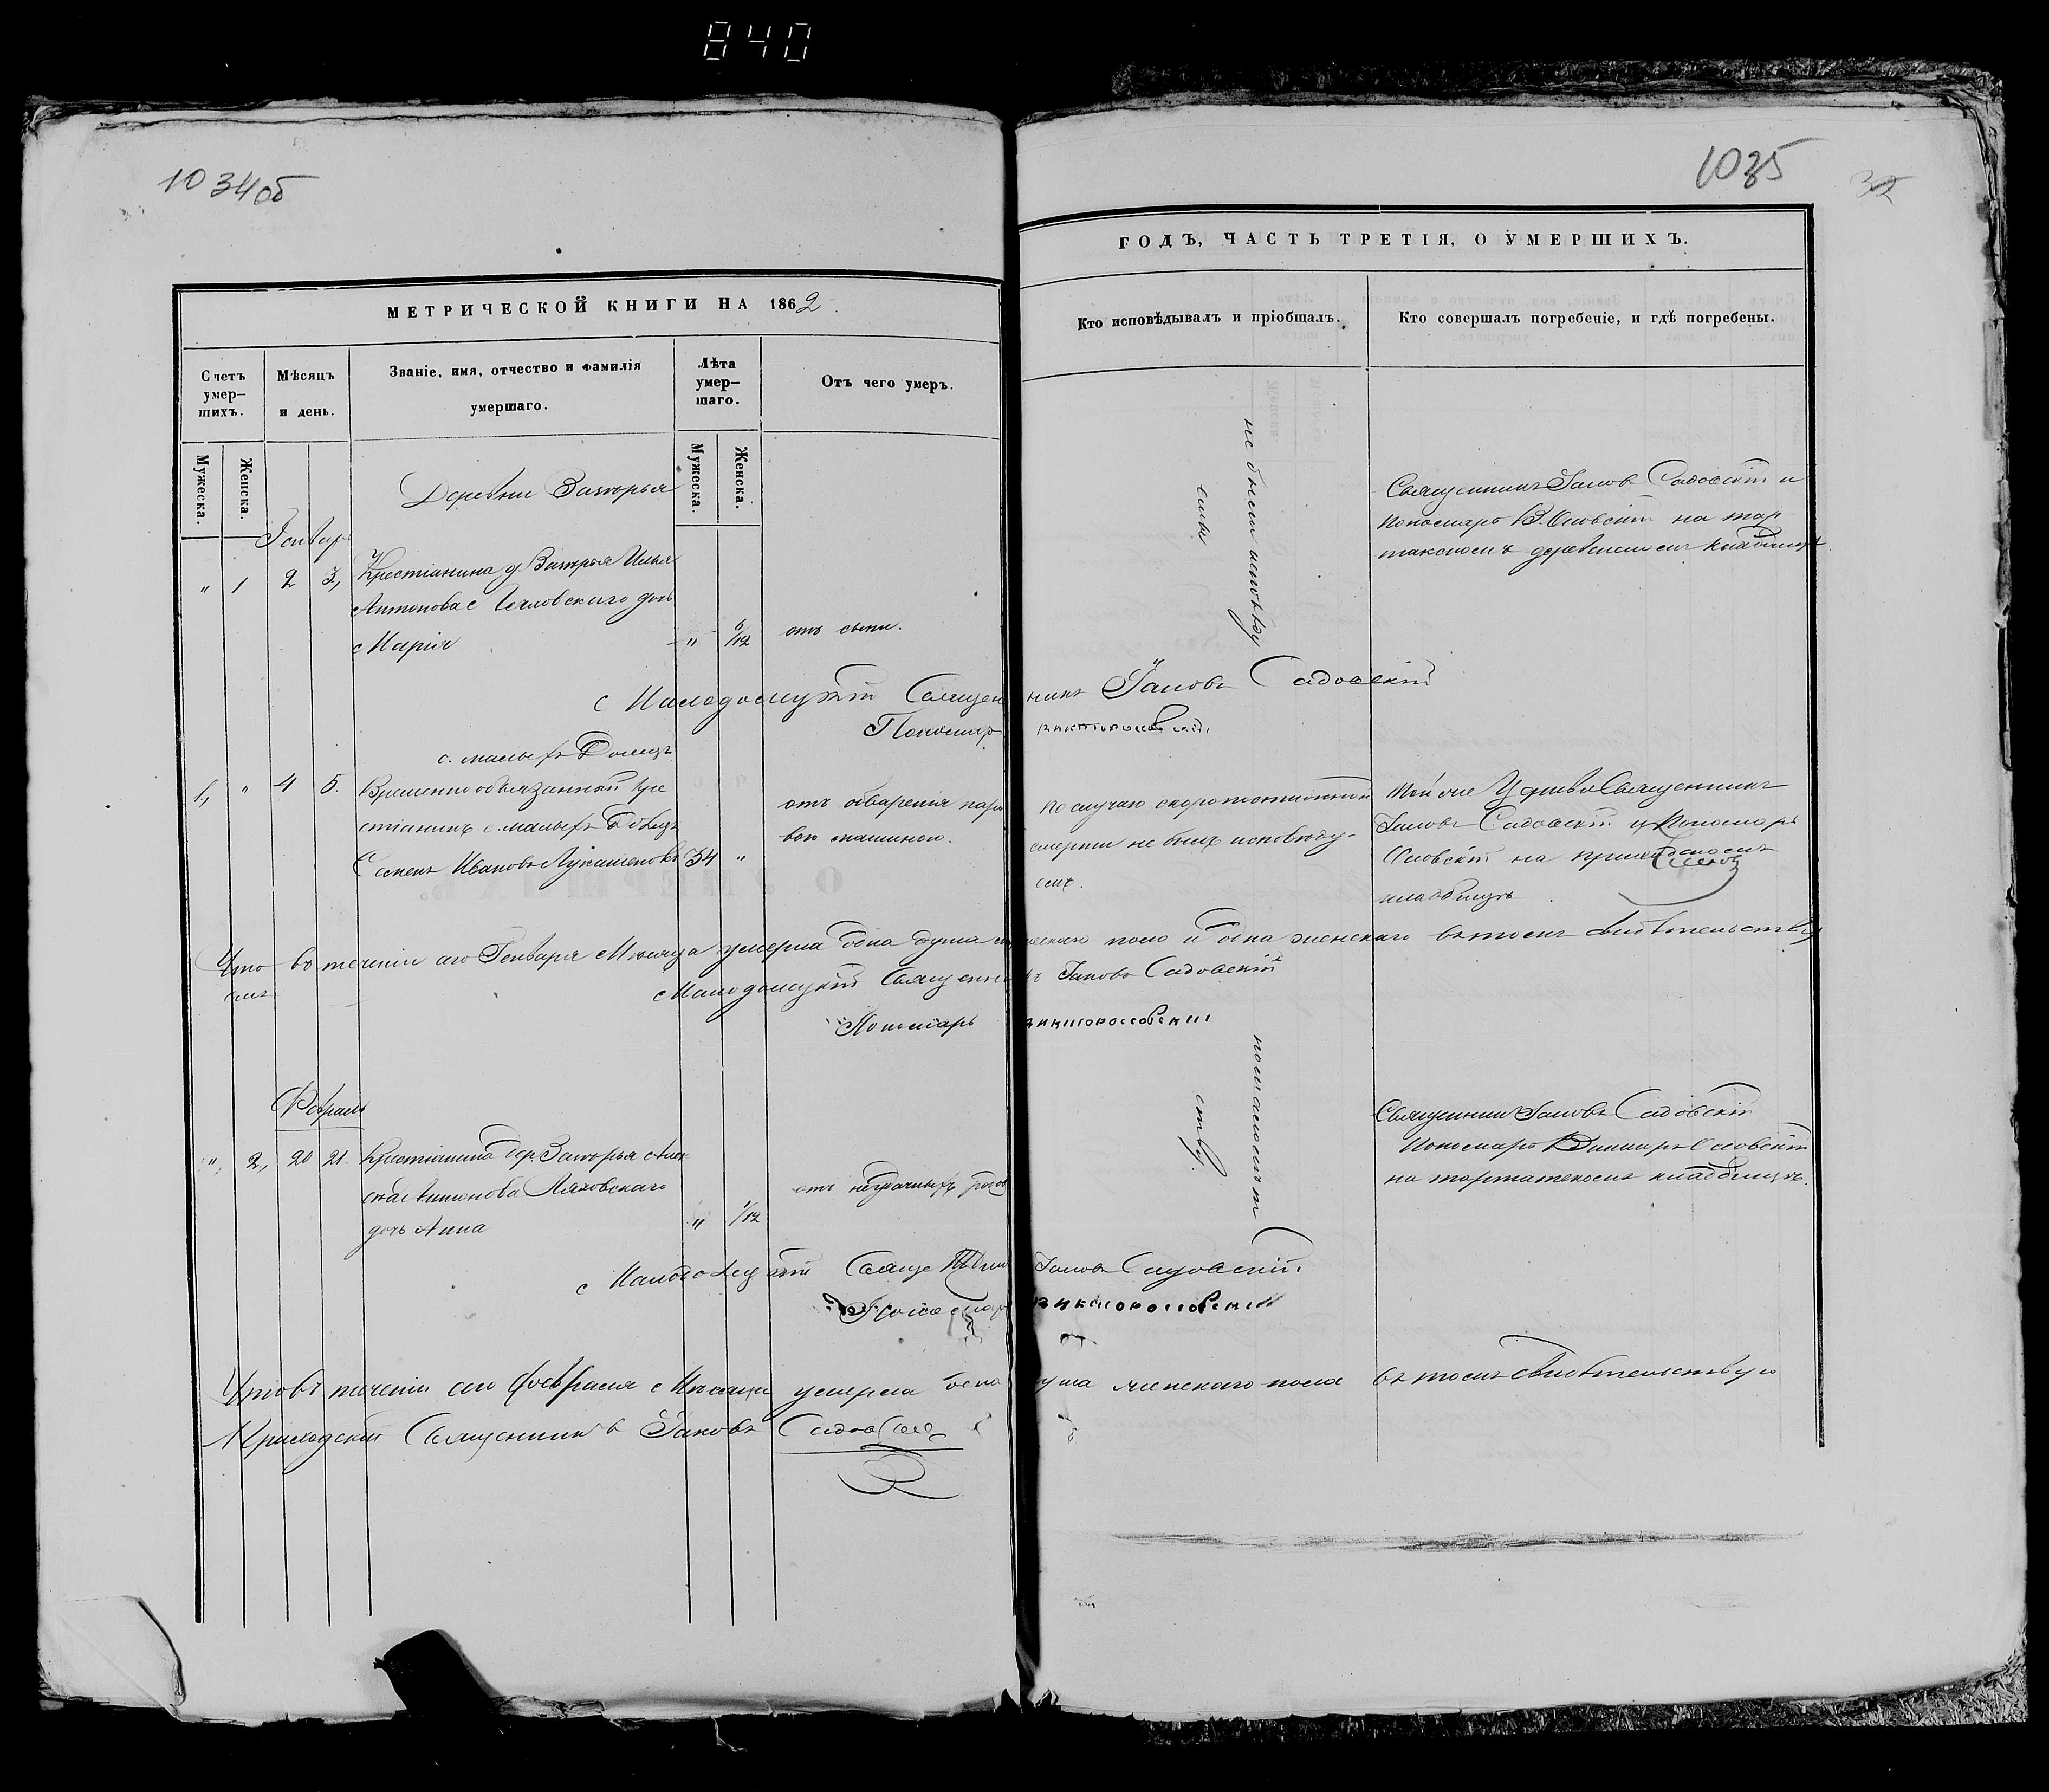 840
1034об
1035
32
МЕТРИЧЕСКОЙ КНИГИ НА 1862
ГОДЪ, ЧАСТЬ ТРЕТІЯ, О УМЕРШИХЪ.
Счетъ умер-шихъ.
Мѣсяцъ и день.
Званіе, имя, отчество и фамилія умершаго.
Лѣта умер-шаго.
Отъ чего умеръ.
Кто исповѣдывалъ и пріобщалъ.
Кто совершалъ погребеніе, и гдѣ погребены.
Мужеска.
Женска.
Мужеска.
Женска.
Деревни Загорья
Генварь
" 1 2 3,
Крестіанина д. Загорья Илья
Антонова дочь
Марія
" /12
отъ сыпи.
не была исповѣду
ема
Священникъ Іаковъ Садовскій и
Пономарь В. Осовскій на
деревенскомъ кладбищѣ
Священникъ Іаковъ Садовскій
Пономарь Викторъ Осовскій
с. малыхъ Долецъ
1, " 4 5.
Временно обязанный кре
стіанинъ с. малыхъ Долецъ
Семенъ Ивановъ Лукашенокъ 34 "
отъ обваренія паро
вою машиною.
по случаю скоропостижной
смерти не былъ исповѣду-
емъ.
Той же Церкви Священникъ
Іаковъ Садовскій и Пономарь
Осовскій на приходскомъ
кладбищѣ
Что въ теченіи сего Генваря Мѣсяца умерла одна душа мужескаго пола и одна женскаго въ томъ свидѣтельству
емъ
Малодолецкій Священникъ Іаковъ Садовскій
Пономарь Викторъ Осовскій
Февраль
" 2, 20 21.
Крестіанина дер. Загорья
Антонова Ляховскаго
дочь Анна
" 1/12
отъ родовъ
по малолѣт
ству.
Священникъ Іаковъ Садовскій
Пономарь Викторъ Осовскій
на кладбищѣ.
Малодолецкій Священникъ Іаковъ Садовскій.
Пономарь Викторъ Осовскій
Что въ теченіи сего Февраля Мѣсяца умерла одна душа женскаго пола въ томъ свидѣтельствую
Приходскій Священникъ Іаковъ Садовскій